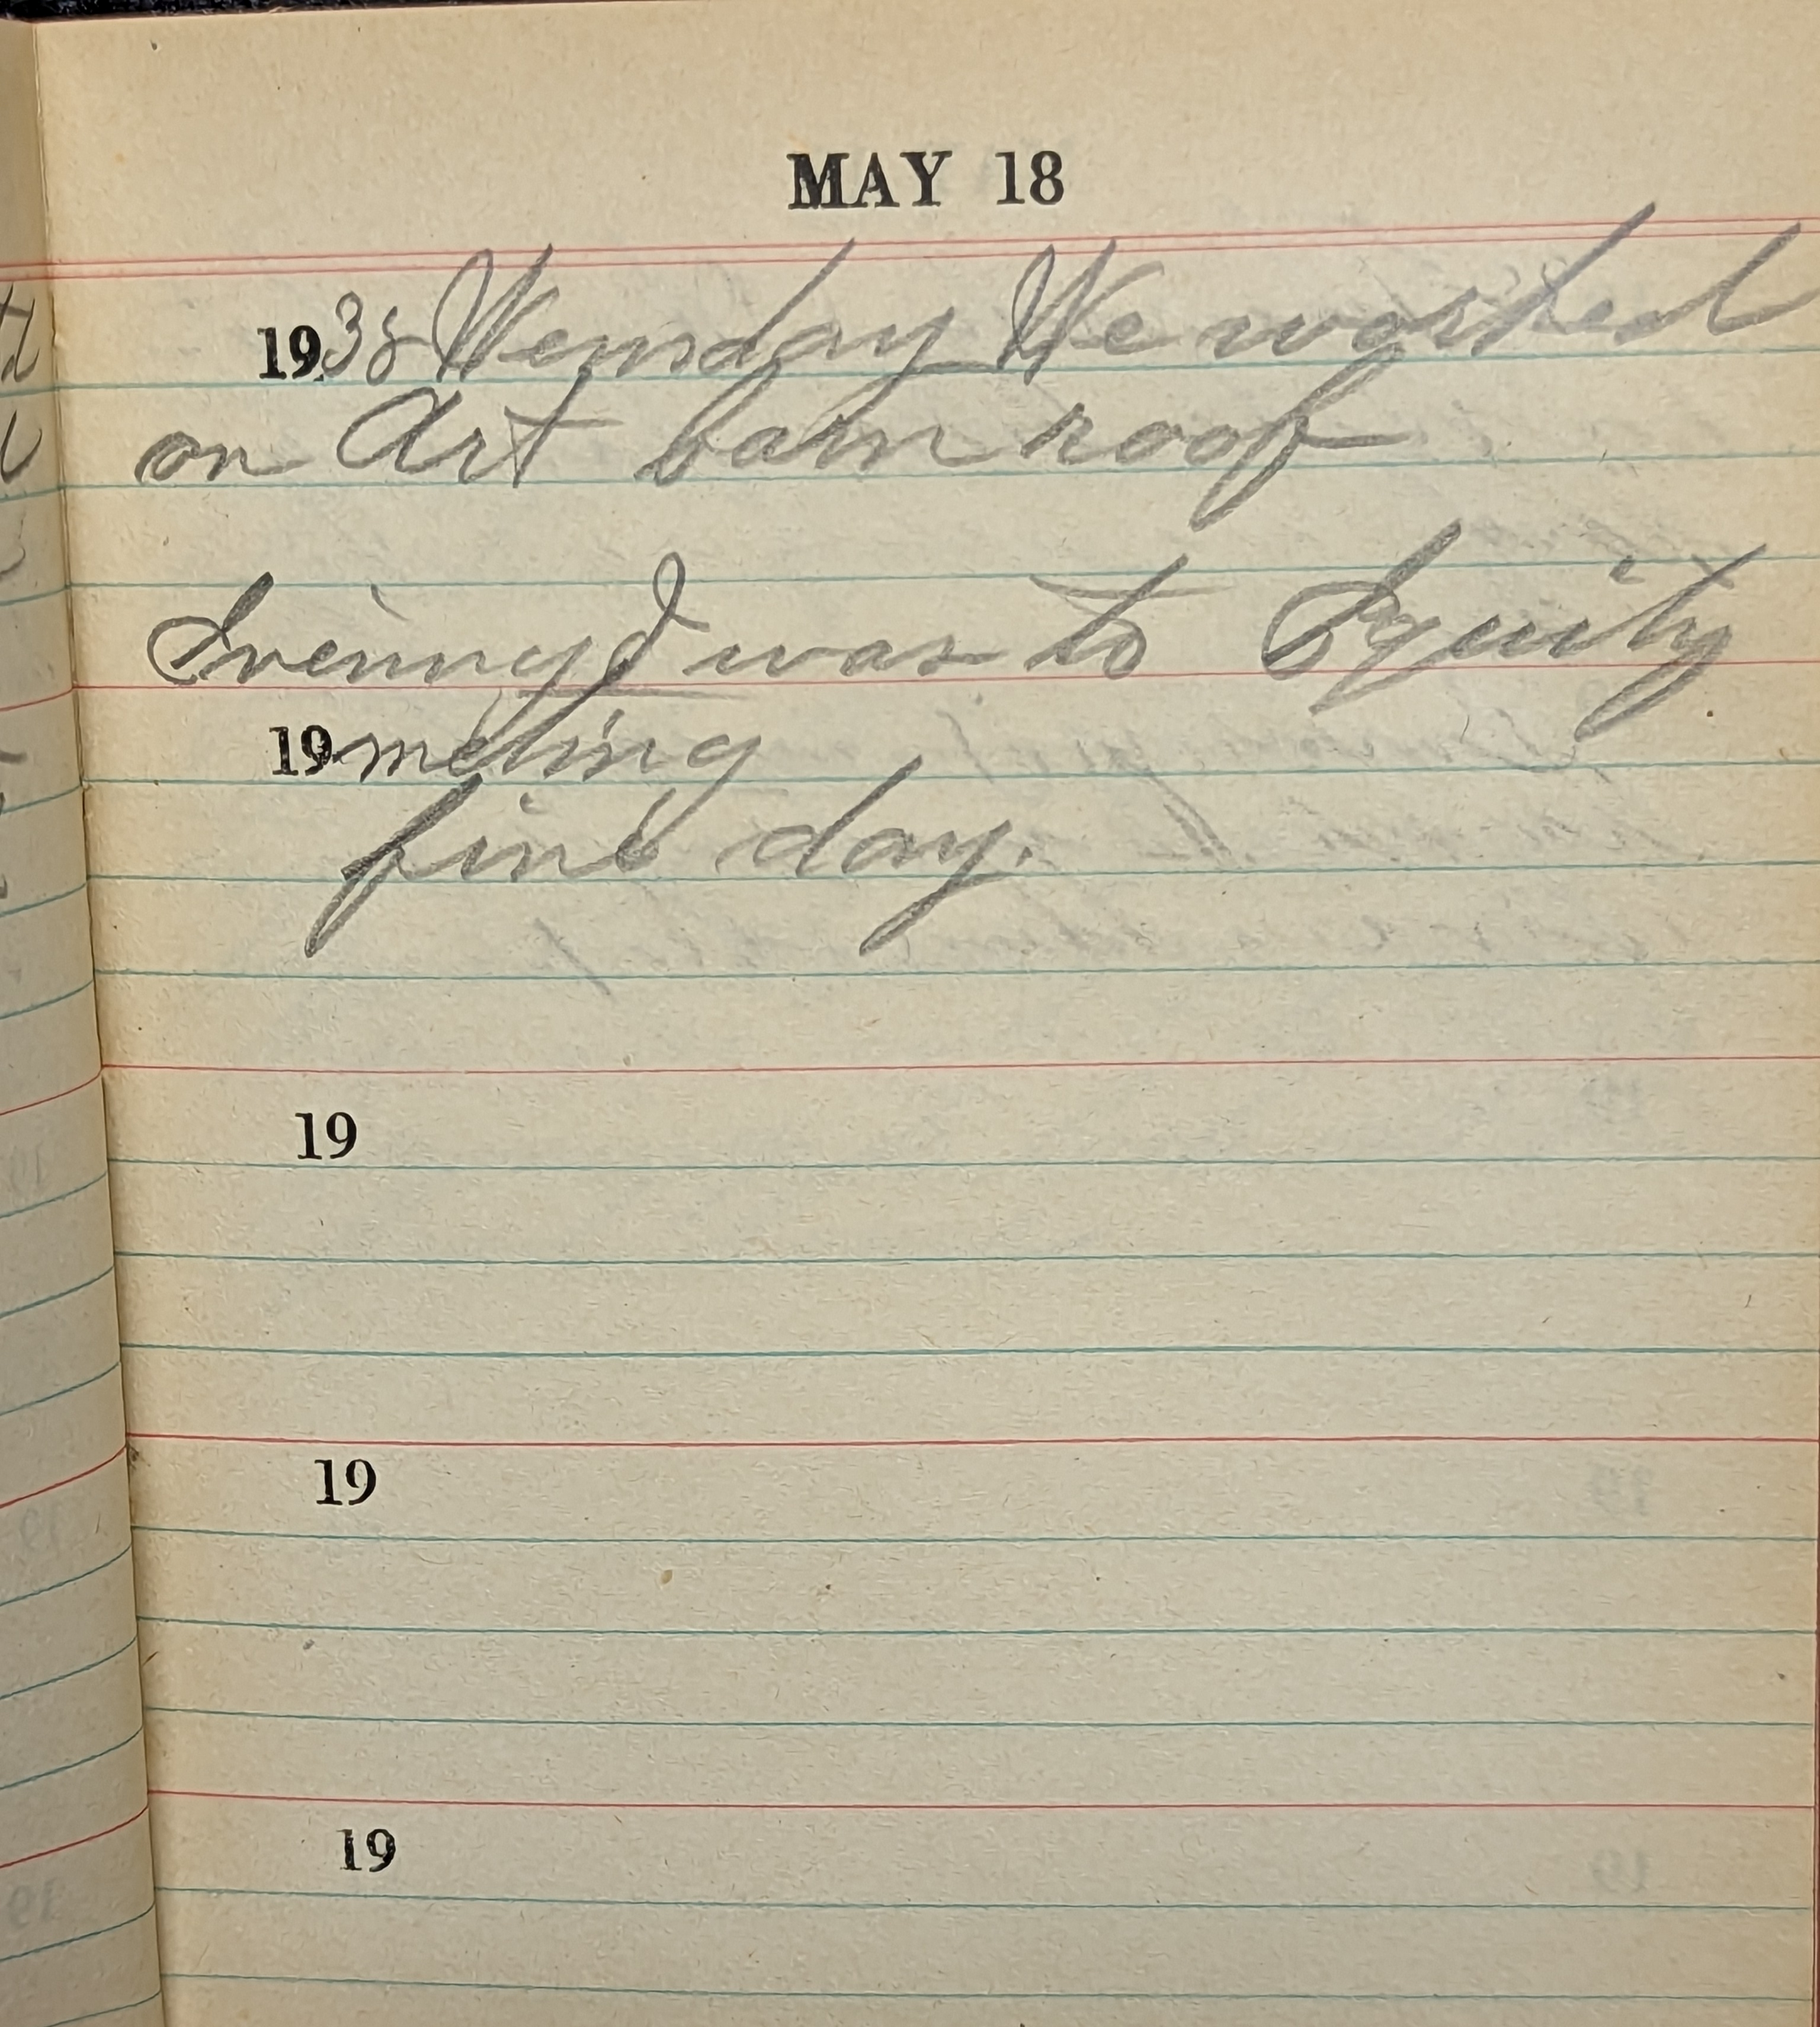 MAY 18
1938 Wensday We worked
on Art barn roof
Evening I was to Equity
19 meting
fine day.
19
19
19